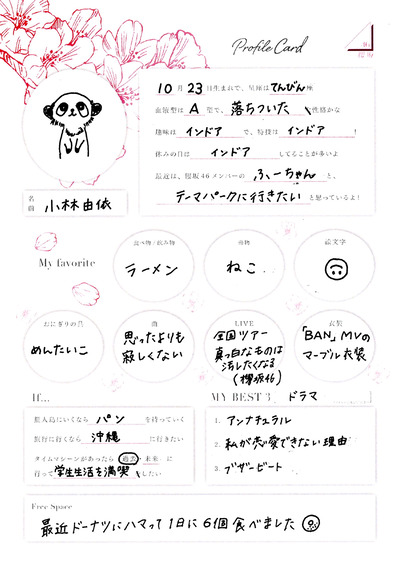 Profile Card
10月23日生まれで、星座はてんびん座
血液型はA型で、落ちついた性格かな
趣味はインドアで、特技はインドア!
休みの日はインドアしてることが多いよ
最近は、櫻坂46メンバーのふーちゃんと、
テーマパークに行きたいと思っているよ!
名前 小林由依
My favorite
食べ物/飲み物
ラーメン
動物
ねこ
絵文字
おにぎりの具
めんたいこ
曲
思ったよりも
寂しくない
LIVE
全国ツアー
真っ白なものは
汚したくなる
(欅坂46)
衣装
「BAN」MVの
マーブル衣装
If...
無人島にいくならパンを持っていく
旅行に行くなら沖縄に行きたい
タイムマシーンがあったら過去・未来に
行って学生生活を満喫したい
MY BEST 3 ドラマ
1. アンナチュラル
2. 私が恋愛できない理由
3. ブザービート
Free Space
最近ドーナツにハマって1日に6個食べました